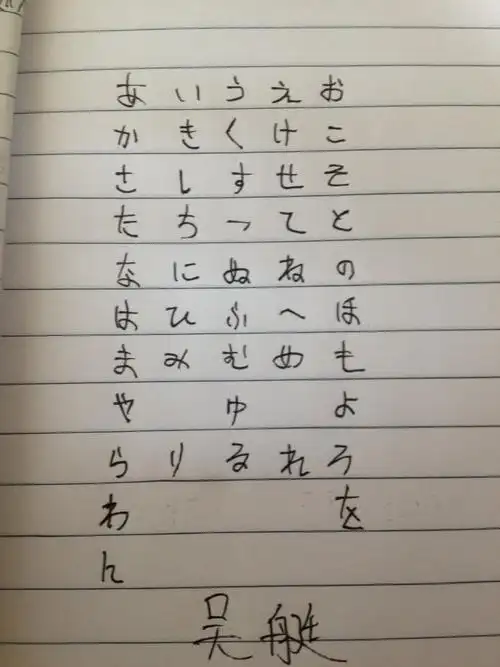 あ い う え お
か き く け こ
さ し す せ そ
た ち つ て と
な に ぬ ね の
は ひ ふ へ ほ
ま み む め も
や ゆ よ
ら り る れ ろ
わ を
ん
吴艇